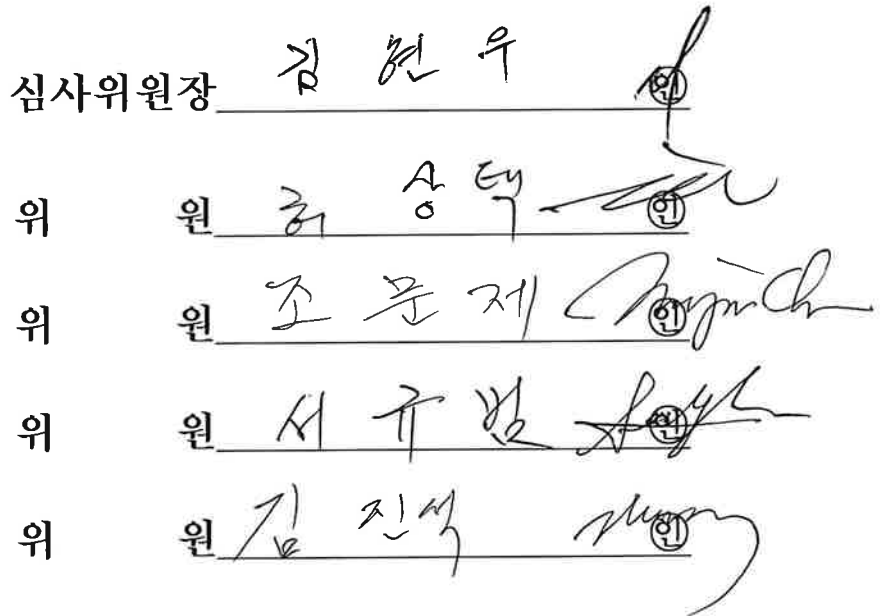 심사위원장 김 현 우 인
위 원 허 상 택 인
위 원 조 문 제 인
위 원 서 규 범 인
위 원 김 진석 인